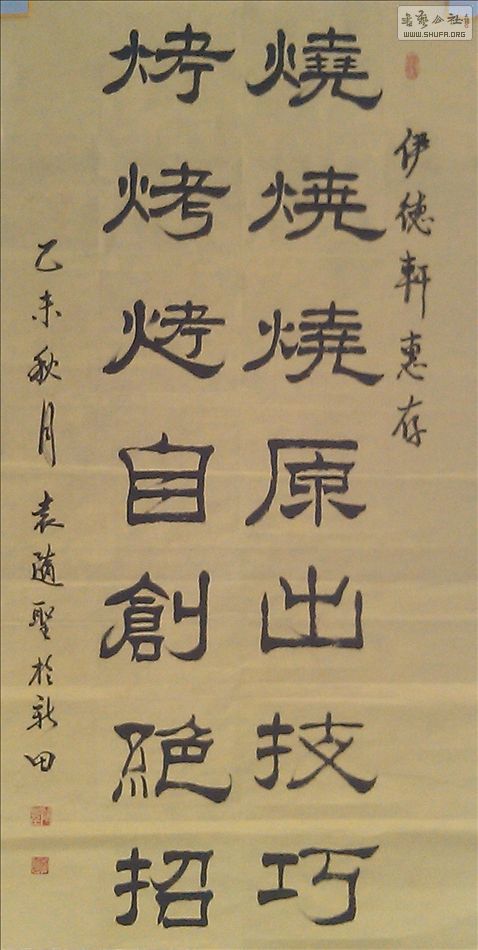 伊德軒惠存
燒燒燒原出技巧
烤烤烤自創絕招
乙未秋月袁随聖於新田
书艺公社
WWW.SHUFA.ORG